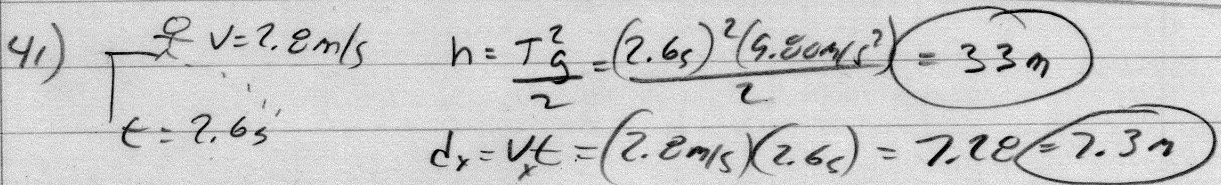 41) V=2.8m/s h = T²g/2 = (2.6s)²(9.80m/s²)/2 = 33m
t = 2.6s dx = Vxt = (2.8m/s)(2.6s) = 7.28 = 7.3m